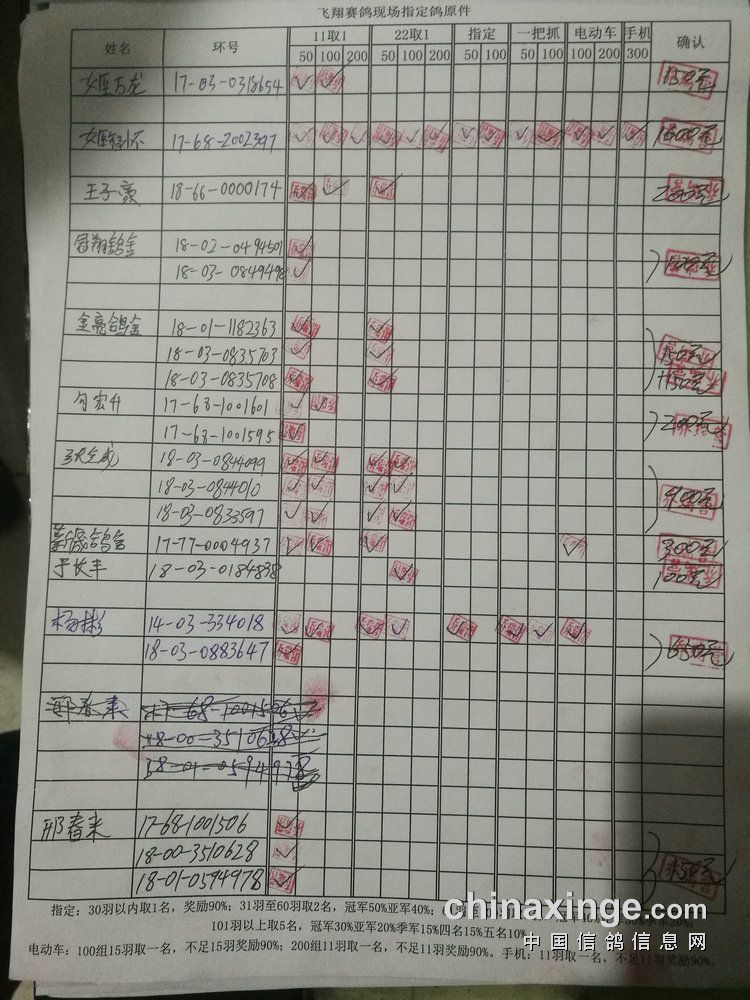 飞翔赛鸽现场指定鸽原件
姓名 环号 11取1 22取1 指定 一把抓 电动车 手机 确认
50 100 200 50 100 200 50 100 50 100 100 200 300
17-03-0318654 150元
17-68-2002397 1600元
王子豪 18-66-0000174 200元
冠翔鸽舍 18-02-0494501
18-03-0849498
金亮鸽舍 18-01-1182363
18-03-0835703 150元
18-03-0835708 +150元
17-68-1001601
17-68-1001595 200元
18-03-0844099
18-03-0844010 900元
18-03-0833597
鸽舍 17-77-0004937 300元
于长丰 18-03-0184838 100元
杨彬 14-03-334018
18-03-0883647 650元
邢春来 17-68-1001506
18-00-3510628
18-01-0594978
邢春来 17-68-1001506
18-00-3510628 150元
18-01-0594978
指定：30羽以内取1名，奖励90%；31羽至60羽取2名，冠军50%亚军40%；
101羽以上取5名，冠军30%亚军20%季军15%四名15%五名10%
电动车：100组15羽取一名，不足15羽奖励90%；200组11羽取一名，不足11羽奖励90%。手机：11羽取一名，不足11羽奖励90%。
chinaxinge.com
中国信鸽信息网